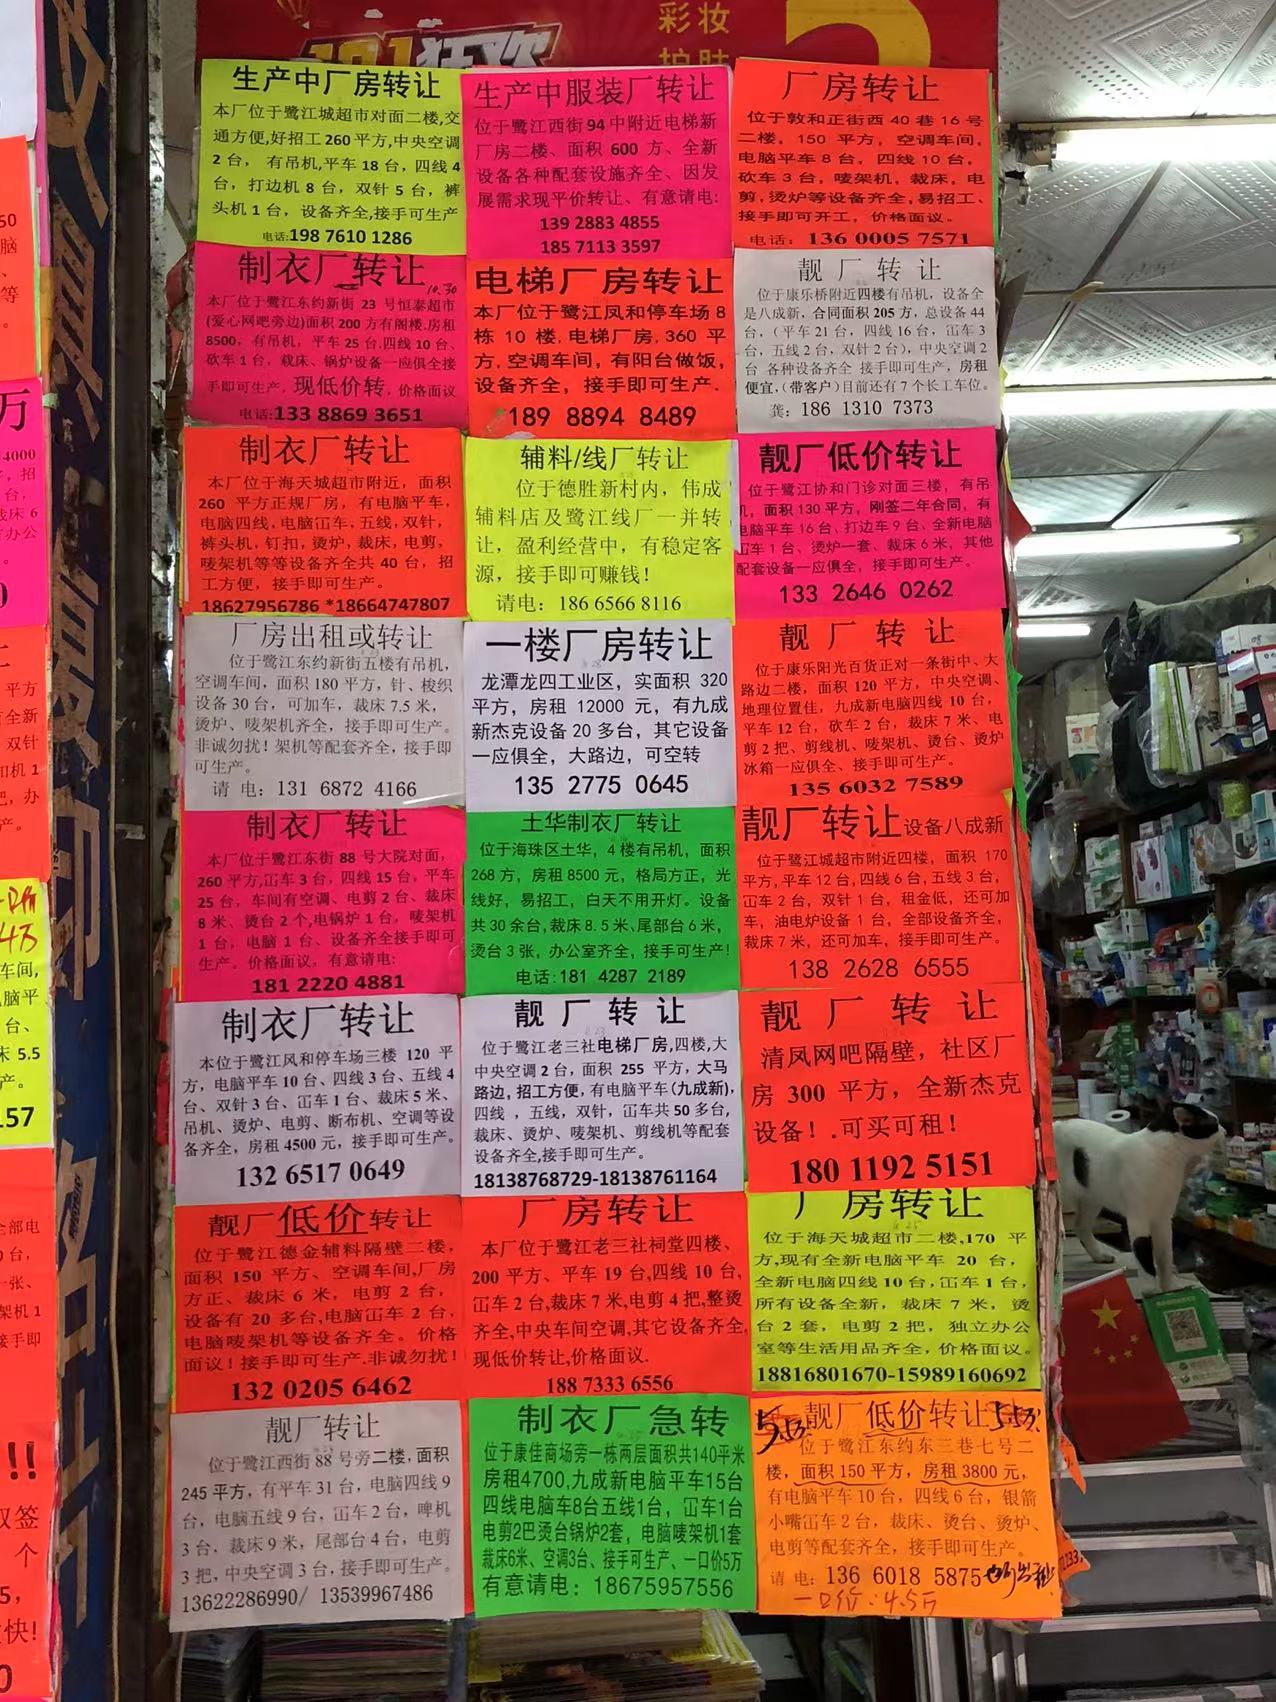 彩妆
护肤
狂欢
2
生产中厂房转让
本厂位于鹭江城超市对面二楼,交
通方便,好招工260平方,中央空调
2台，有吊机,平车18台，四线4
台，打边机8台，双针5台，裤
头机1台，设备齐全,接手可生产
电话:198 7610 1286
生产中服装厂转让
位于鹭江西街94中附近电梯新
厂房二楼、面积600方、全新
设备各种配套设施齐全、因发
展需求现平价转让、有意请电:
139 2883 4855
185 7113 3597
厂房转让
位于敦和正街西40巷16号
二楼，150平方，空调车间,
电脑平车8台，四线10台，
砍车3台，唛架机，裁床，电
剪,烫炉等设备齐全,易招工、
接手即可开工，价格面议。
电话：136 0005 7571
制衣厂转让
10.30
本厂位于鹭江东约新街23号恒泰超市
(爱心网吧旁边)面积200方有阁楼.房租
8500，有吊机，平车25台.四线10台、
砍车1台，裁床、锅炉设备一应俱全接
手即可生产，现低价转，价格面议
电话:133 8869 3651
电梯厂房转让
本厂位于鹭江凤和停车场8
栋10楼.电梯厂房,360平
方,空调车间，有阳台做饭,
设备齐全，接手即可生产.
189 8894 8489
靓厂转让
位于康乐桥附近四楼有吊机，设备全
是八成新，合同面积205方，总设备44
台，（平车21台，四线16台，冚车3
台，五线2台，双针2台），中央空调2
台 各种设备齐全 接手即可生产，房租
便宜，（带客户）目前还有7个长工车位。
龚：186 1310 7373
制衣厂转让
本厂位于海天城超市附近，面积
260平方正规厂房，有电脑平车,
电脑四线，电脑冚车，五线，双针,
裤头机，钉扣，烫炉，裁床，电剪,
唛架机等等设备齐全共40台，招
工方便，接手即可生产。
18627956786 *18664747807
辅料/线厂转让
位于德胜新村内，伟成
辅料店及鹭江线厂一并转
让，盈利经营中，有稳定客
源，接手即可赚钱！
请电：186 6566 8116
靓厂低价转让
位于鹭江协和门诊对面三楼，有吊
机，面积130平方，刚签二年合同，有
电脑平车16台、打边车9台、全新电脑
冚车1台、烫炉一套、裁床6米，其他
配套设备一应俱全，接手即可生产。
133 2646 0262
厂房出租或转让
位于鹭江东约新街五楼有吊机,
空调车间，面积180平方，针、梭织
设备30台，可加车，裁床7.5米,
烫炉、唛架机齐全，接手即可生产。
非诚勿扰！架机等配套齐全，接手即
可生产。
请 电：131 6872 4166
一楼厂房转让
龙潭龙四工业区，实面积320
平方，房租12000元，有九成
新杰克设备20多台，其它设备
一应俱全，大路边，可空转
135 2775 0645
靓厂转让
位于康乐阳光百货正对一条街中、大
路边二楼，面积120平方，中央空调、
地理位置佳，九成新电脑四线10台，
平车12台，砍车2台，裁床7米、电
剪2把，剪线机、唛架机、烫台、烫炉
冰箱一应俱全、接手即可生产。
135 6032 7589
制衣厂转让
本厂位于鹭江东街88号大院对面，
260平方,冚车3台，四线15台，平车
25台，车间有空调、电剪2台、裁床
8米、烫台2个,电锅炉1台，唛架机
1台，电脑1台、设备齐全接手即可
生产。价格面议，有意请电:
181 2220 4881
土华制衣厂转让
位于海珠区土华，4楼有吊机，面积
268方，房租8500元，格局方正，光
线好，易招工，白天不用开灯。设备
共30余台,裁床8.5米、尾部台6米,
烫台3张，办公室齐全，接手可生产!
电话:181 4287 2189
靓厂转让设备八成新
位于鹭江城超市附近四楼，面积170
平方,平车12台,四线6台，五线3台,
冚车2台，双针1台，租金低，还可加
车，油电炉设备1台，全部设备齐全,
裁床7米，还可加车，接手即可生产。
138 2628 6555
制衣厂转让
本位于鹭江风和停车场三楼120平
方，电脑平车10台、四线3台、五线4
台、双针3台、冚车1台、裁床5米、
吊机、烫炉、电剪、断布机、空调等设
备齐全，房租4500元，接手即可生产。
132 6517 0649
靓厂转让
位于鹭江老三社电梯厂房,四楼,大
中央空调2台，面积255平方，大马
路边，招工方便，有电脑平车(九成新),
四线，五线，双针，冚车共50多台,
裁床、烫炉、唛架机、剪线机等配套
设备齐全,接手即可生产。
18138768729-18138761164
靓厂转让
清凤网吧隔壁，社区厂
房300平方，全新杰克
设备！.可买可租！
180 1192 5151
靓厂低价转让
位于鹭江德金辅料隔壁二楼，
面积150平方、空调车间,厂房
方正、裁床6米，电剪2台，
设备有20多台,电脑冚车2台,
电脑唛架机等设备齐全。价格
面议！接手即可生产.非诚勿扰！
132 0205 6462
厂房转让
本厂位于鹭江老三社祠堂四楼、
200平方、平车19台,四线10台,
冚车2台,裁床7米,电剪4把,整烫
齐全,中央车间空调,其它设备齐全,
现低价转让,价格面议.
188 7333 6556
厂房转让
位于海天城超市二楼,170平
方,现有全新电脑平车20台,
全新电脑四线10台,冚车1台,
所有设备全新，裁床7米，烫
台2套，电剪2把，独立办公
室等生活用品齐全，价格面议。
18816801670-15989160692
靓厂转让
位于鹭江西街88号旁二楼,面积
245平方，有平车31台，电脑四线9
台，电脑五线9台，冚车2台，啤机
3台，裁床9米，尾部台4台，电剪
3把，中央空调3台，接手即可生产。
13622286990/ 13539967486
制衣厂急转
位于康佳商场旁一栋两层面积共140平米
房租4700,九成新电脑平车15台
四线电脑车8台五线1台，冚车1台
电剪2巴烫台锅炉2套，电脑唛架机1套
裁床6米、空调3台、接手可生产、一口价5万
有意请电：18675957556
靓厂低价转让
位于鹭江东约东三巷七号二
楼，面积150平方，房租3800元，
有电脑平车10台，四线6台，银箭
小嘴冚车2台，裁床、烫台、烫炉、
电剪等配套齐全，接手即可生产。
请 电：136 6018 5875
一口价：4.5万